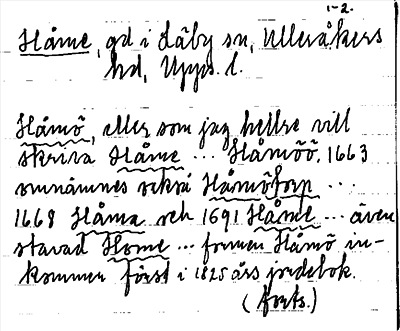 1-2.
Håme, gd i Läby sn, Ulleråkers
hd, Upps. l.
Håmö, eller som jag hellre vill
skriva Håme ... Håmöö. 1663
omnämnes också Håmötorp ...
1668 Håma och 1691 Håmel ... även
stavad Home ... formen Håmö in-
kommer först i 1825 års jordebok.
(forts.)